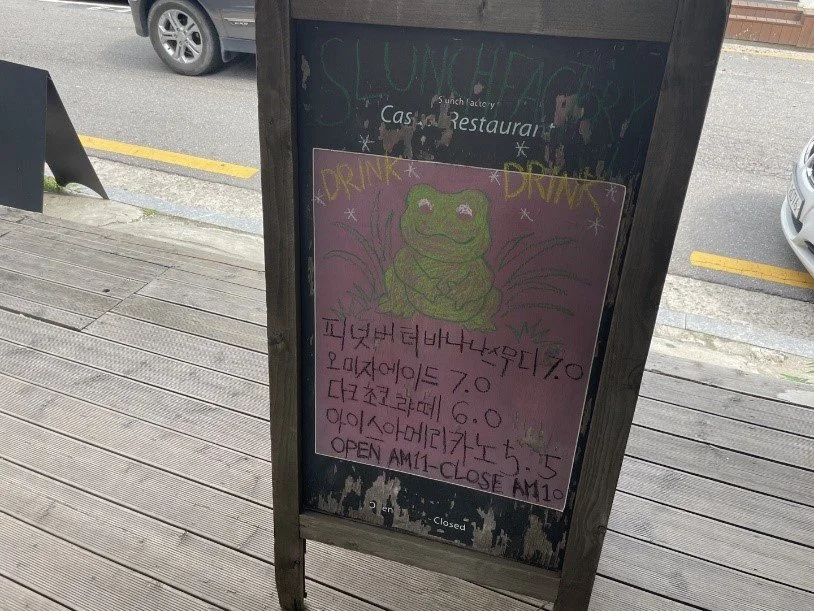 SLUNCHFACTORY
Slunch factory
Restaurant
DRINK DRINK
피넛버터바나나스무디 7.0
오미자에이드 7.0
다크초코라떼 6.0
아이스아메리카노 5.5
OPEN AM11-CLOSE AM10
Closed